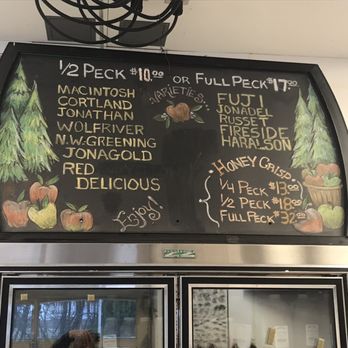 1/2 PECK $10.00 OR FULL PECK $17.00
VARIETIES
MACINTOSH
CORTLAND
JONATHAN
WOLFRIVER
N.W. GREENING
JONAGOLD
RED
DELICIOUS
FUJI
JONADEL
RUSSET
FIRESIDE
HARALSON
Enjoy!
HONEY CRISP
1/4 PECK $13.00
1/2 PECK $18.00
FULL PECK $32.00